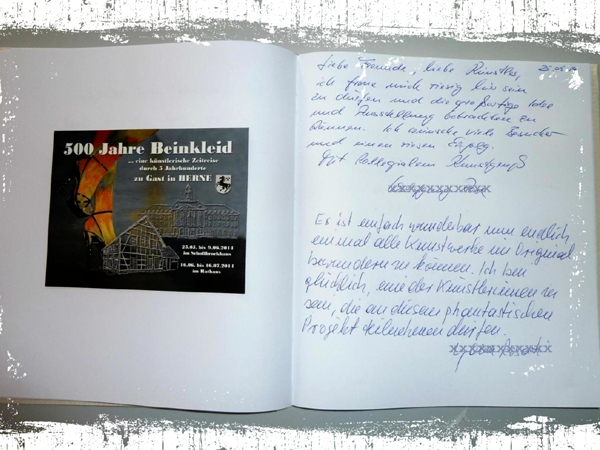 500 Jahre Beinkleid
... eine künstlerische Zeitreise
durch 5 Jahrhunderte
zu Gast in HERNE
23.05. bis 9.06.2014
im Schollbrockhaus
16.06. bis 16.07.2014
im Rathaus
Liebe Freunde, liebe Künstler,
ich freue mich riesig hier sein
zu dürfen und die großartige Idee
und Ausstellung betrachten zu
können. Ich wünsche viele Besucher
und einen riesen Erfolg.
Mit kollegialem Kunstgruß
Es ist einfach wunderbar nun endlich
einmal alle Kunstwerke im Original
bewundern zu können. Ich bin
glücklich, eine der Künstlerinnen zu
sein, die an diesem phantastischen
Projekt teilnehmen durfen.